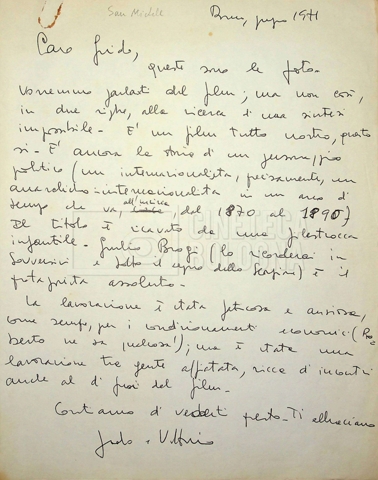 San Michele
Roma, giugno 1971
Caro Guido,
queste sono le foto.
Vorremmo parlarti del film; ma non così,
in due righe, alla ricerca di una sintesi
impossibile. È un film tutto nostro, questo
sì. È ancora la storia di un personaggio
politico (un internazionalista, precisamente, un
anarchico-internazionalista in un arco di
tempo che va, all'incirca, dal 1870 al 1890)
Il titolo è ricavato da una filastrocca
infantile. Giulio Brogi (lo ricorderai in
Sovversivi e Sotto il segno dello Scorpione) è il
protagonista assoluto.
La lavorazione è stata faticosa e ansiosa,
come sempre, per i condizionamenti economici (Ro-
berto ne sa qualcosa!); ma è stata una
lavorazione tra gente affiatata, ricca di incontri
anche al di fuori del film.
Contiamo di vederti presto. Ti abbracciano
Vittorio
CINETECA
BOLOGNA